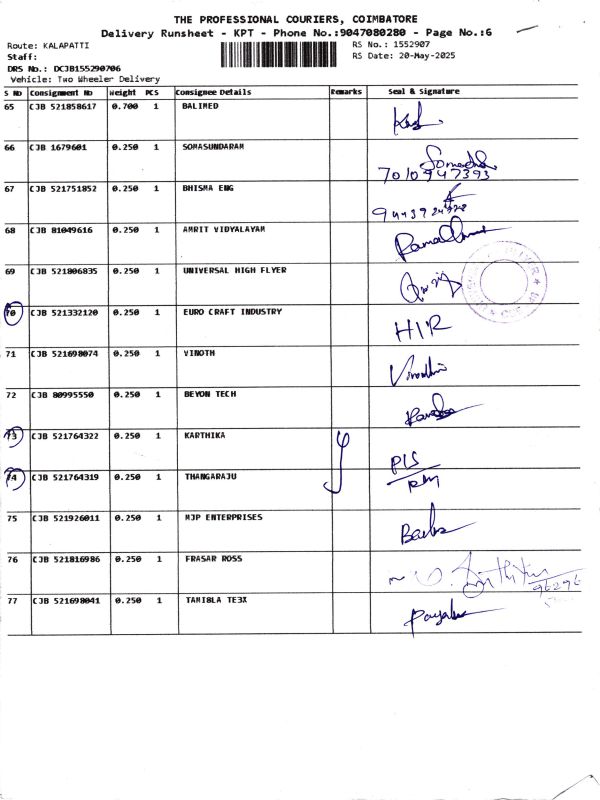 THE PROFESSIONAL COURIERS, COIMBATORE
Delivery Runsheet - KPT - Phone No.:9047080280 - Page No.:6
Route: KALAPATTI
RS No.: 1552907
Staff:
RS Date: 20-May-2025
DRS No.: DCJB155290706
Vehicle: Two Wheeler Delivery
S No Consignment No Weight PCS Consignee Details Remarks Seal & Signature
65 CJB 521858617 0.700 1 BALIMED
66 CJB 1679601 0.250 1 SOMASUNDARAM
7010947393
67 CJB 521751852 0.250 1 BHISMA ENG
68 CJB 81049616 0.250 1 AMRIT VIDYALAYAM
69 CJB 521806835 0.250 1 UNIVERSAL HIGH FLYER
70 CJB 521332120 0.250 1 EURO CRAFT INDUSTRY
HIR
71 CJB 521698074 0.250 1 VINOTH
72 CJB 80995550 0.250 1 BEYON TECH
73 CJB 521764322 0.250 1 KARTHIKA
74 CJB 521764319 0.250 1 THANGARAJU
75 CJB 521926011 0.250 1 MJP ENTERPRISES
76 CJB 521816986 0.250 1 FRASAR ROSS
96296
77 CJB 521698041 0.250 1 TAMI8LA TE3X